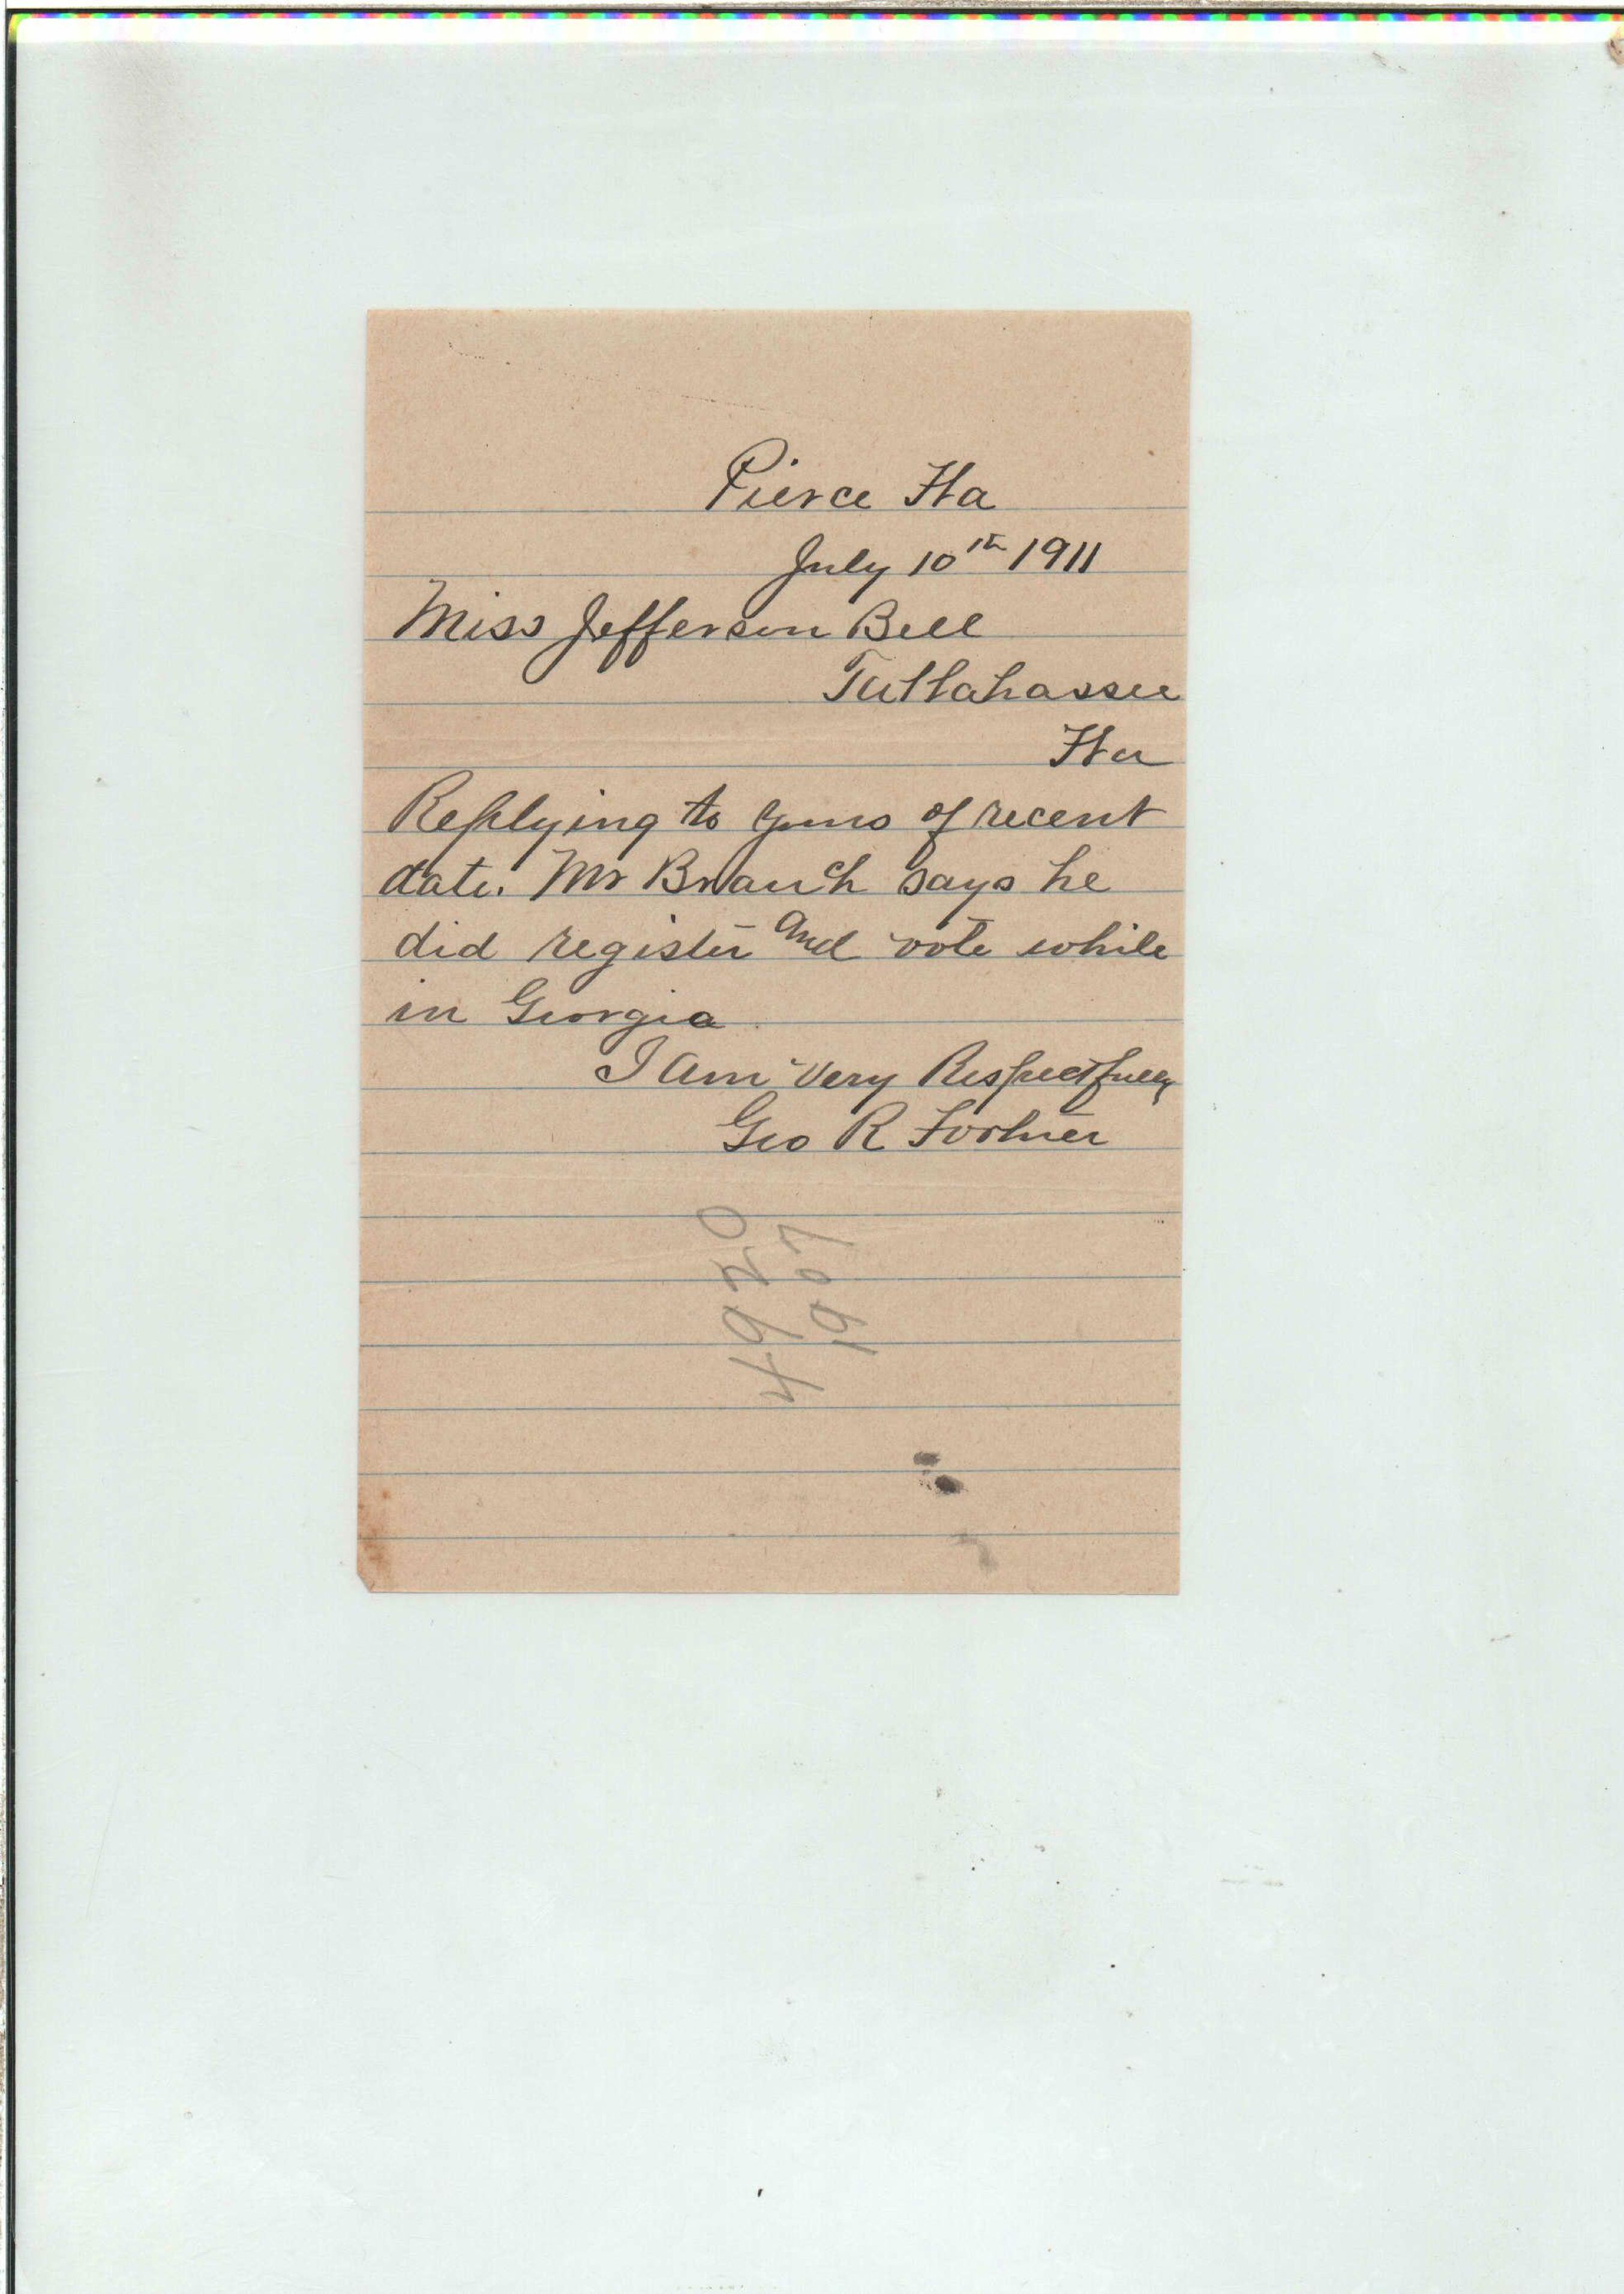 Pierce Fla
July 10th 1911
Miss Jefferson Bell
Tallahassee
Fla
Replying to yours of recent
date. Mr Branch says he
did register and vote while
in Georgia
I am very Respectfully
Geo R Fortner
4920
1907